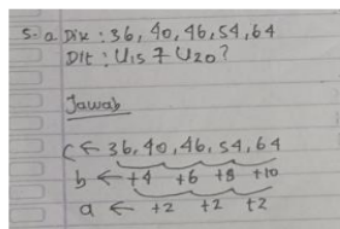 5. a Dix : 36, 40, 46, 54, 64
Dit : U15 7 U20?
Jawab
C ← 36, 40, 46, 54, 64
b ← +4 +6 +8 +10
a ← +2 +2 +2